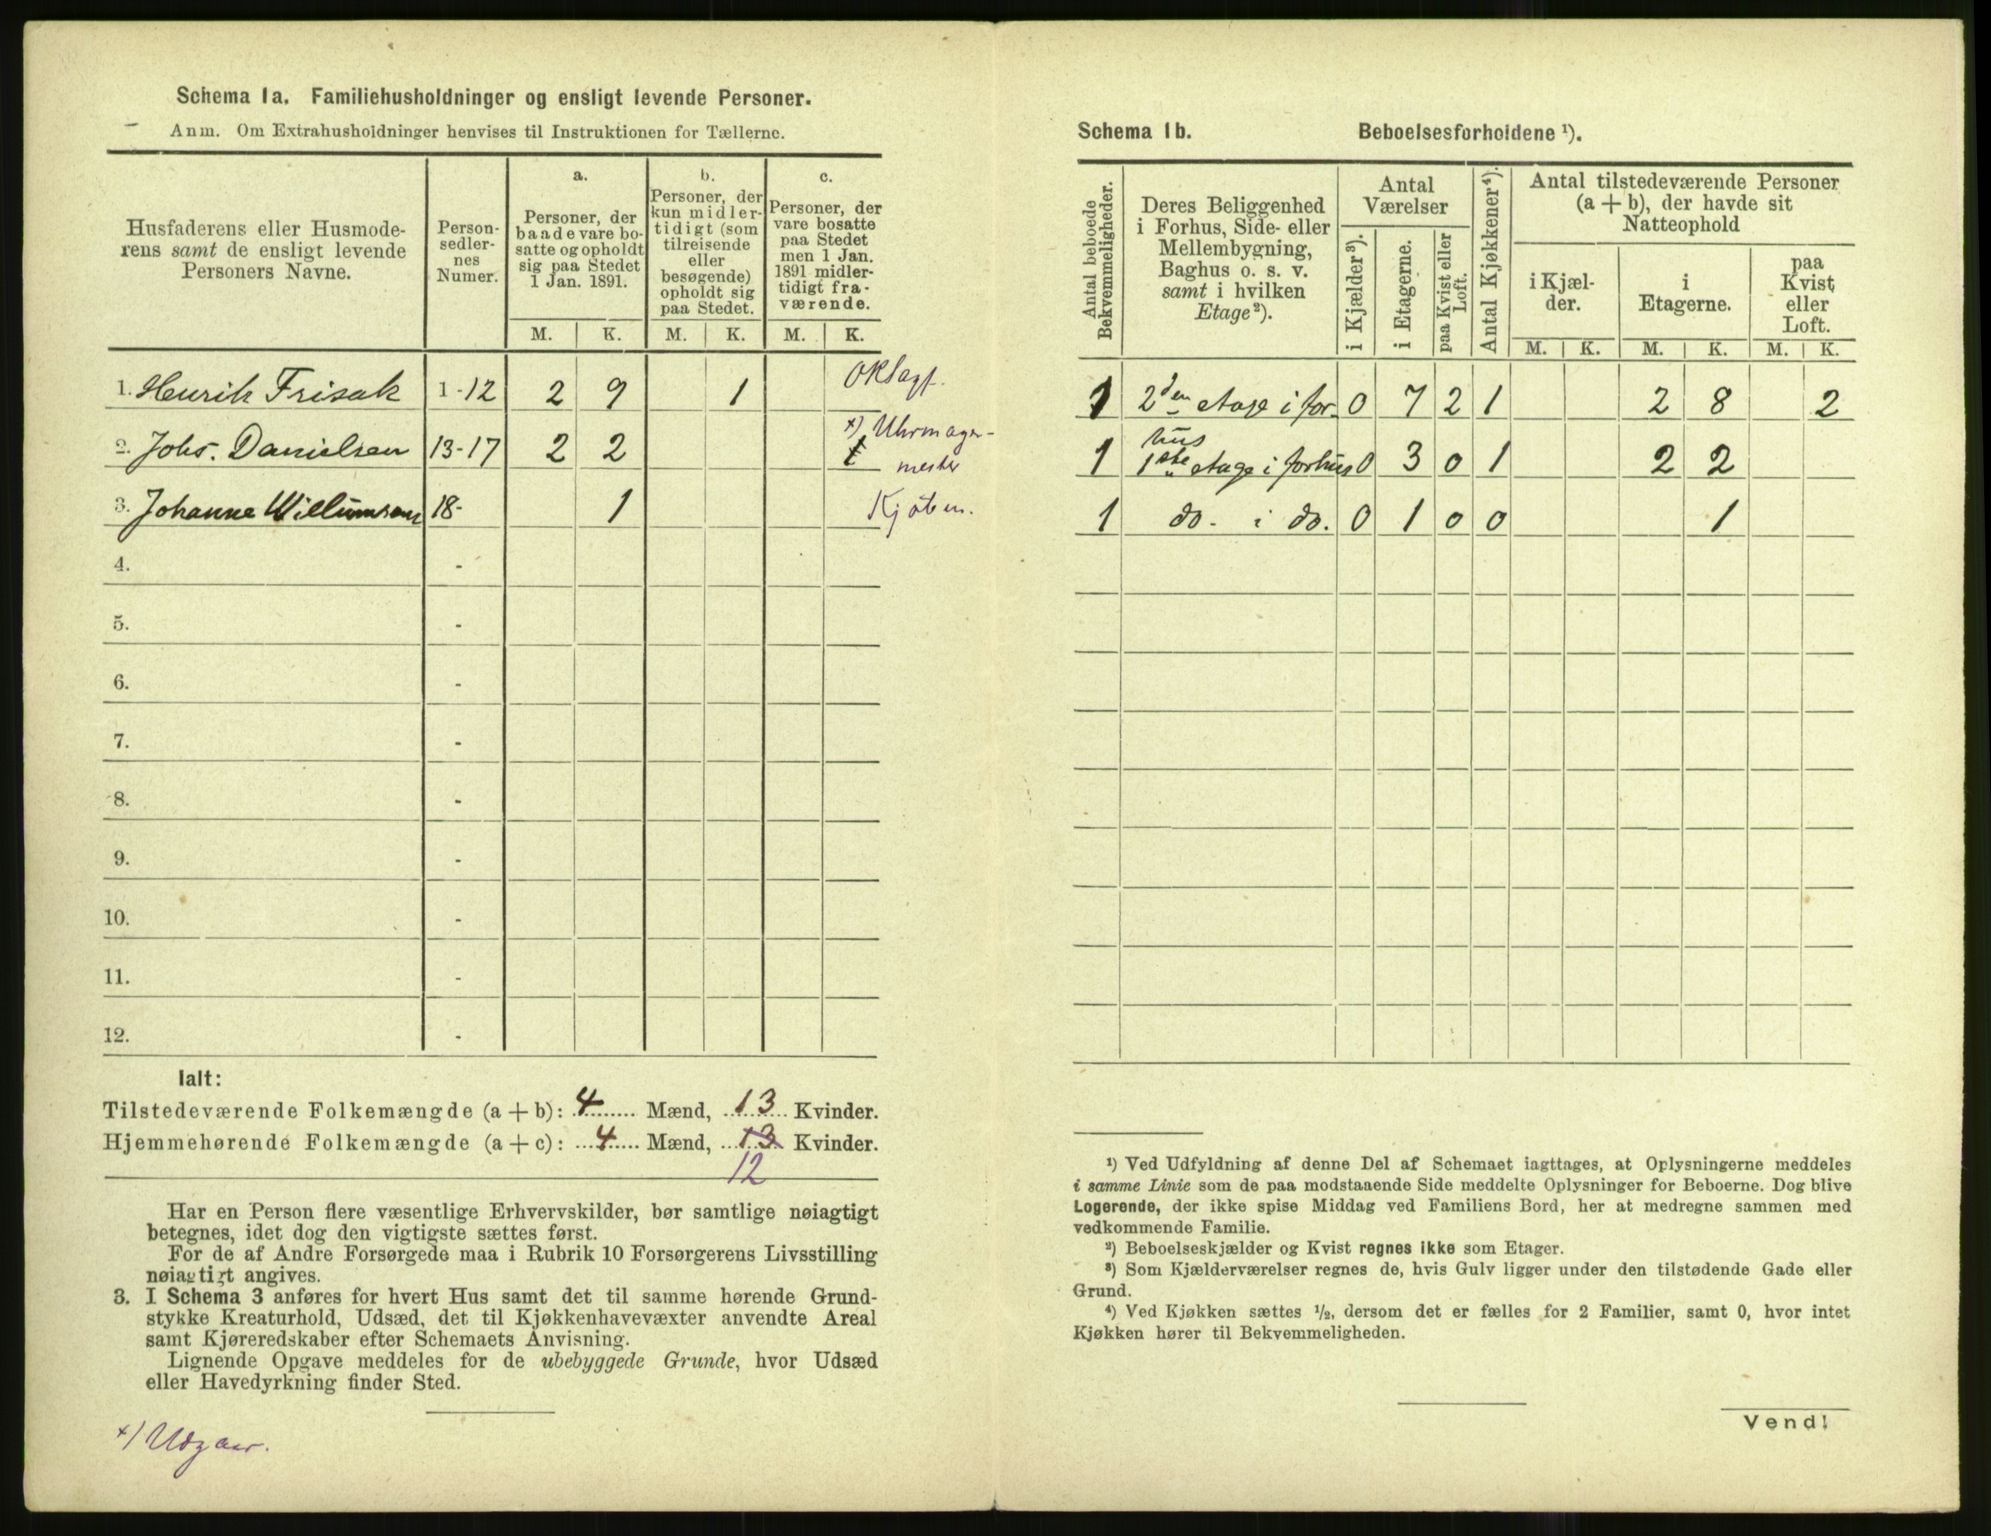 Schema 1a. Familiehusholdninger og ensligt levende Personer.
Anm. Om Extrahusholdninger henvises til Instruktionen for Tællerne.
Husfaderens eller Husmode-
rens samt de ensligt levende
Personers Navne.
Person-
sedler-
nes
Numer.
a.
Personer, der
baade vare bo-
satte og opholdt
sig paa Stedet
1 Jan. 1891.
b.
Personer, der
kun midler-
tidigt (som
tilreisende
eller
besøgende)
opholdt sig
paa Stedet.
c.
Personer, der
vare bosatte
paa Stedet
men 1 Jan.
1891 midler-
tidigt fra-
værende.
M. K. M. K. M. K.
1. Henrik Frisak 1-12 2 9 1
2. Johs. Danielsen 13-17 2 2 x) Uhrmager-
mester
3. Johanne Willumsen 18- 1 Kjøben.
4. -
5. -
6. -
7. -
8. -
9. -
10. -
11. -
12. -
Ialt:
Tilstedeværende Folkemængde (a + b): 4 Mænd, 13 Kvinder.
Hjemmehørende Folkemængde (a + c): 4 Mænd, 13 Kvinder.
12
Har en Person flere væsentlige Erhvervskilder, bør samtlige nøiagtigt
betegnes, idet dog den vigtigste sættes først.
For de af Andre Forsørgede maa i Rubrik 10 Forsørgerens Livsstilling
nøiagtigt angives.
3. I Schema 3 anføres for hvert Hus samt det til samme hørende Grund-
stykke Kreaturhold, Udsæd, det til Kjøkkenhavevæxter anvendte Areal
samt Kjøreredskaber efter Schemaets Anvisning.
Lignende Opgave meddeles for de ubebyggede Grunde, hvor Udsæd
eller Havedyrkning finder Sted.
x) Udgaar.
Schema 1b. Beboelsesforholdene ¹).
Antal beboede
Bekvemmeligheder.
Deres Beliggenhed
i Forhus, Side- eller
Mellembygning,
Baghus o. s. v.
samt i hvilken
Etage ²).
Antal
Værelser
i Kjælder ³).
i Etagerne.
paa Kvist eller
Loft.
Antal Kjøkkener ⁴).
Antal tilstedeværende Personer
(a + b), der havde sit
Natteophold
i Kjæl-
der.
i
Etagerne.
paa
Kvist
eller
Loft.
M. K. M. K. M. K.
1 2den etage i for- 0 7 2 1 2 8 2
hus
1 1ste etage i forhus 0 3 0 1 2 2
1 do. i do. 0 1 0 0 1
¹) Ved Udfyldning af denne Del af Schemaet iagttages, at Oplysningerne meddeles
i samme Linie som de paa modstaaende Side meddelte Oplysninger for Beboerne. Dog blive
Logerende, der ikke spise Middag ved Familiens Bord, her at medregne sammen med
vedkommende Familie.
²) Beboelseskjælder og Kvist regnes ikke som Etager.
³) Som Kjælderværelser regnes de, hvis Gulv ligger under den tilstødende Gade eller
Grund.
⁴) Ved Kjøkken sættes ½, dersom det er fælles for 2 Familier, samt 0, hvor intet
Kjøkken hører til Bekvemmeligheden.
Vend!